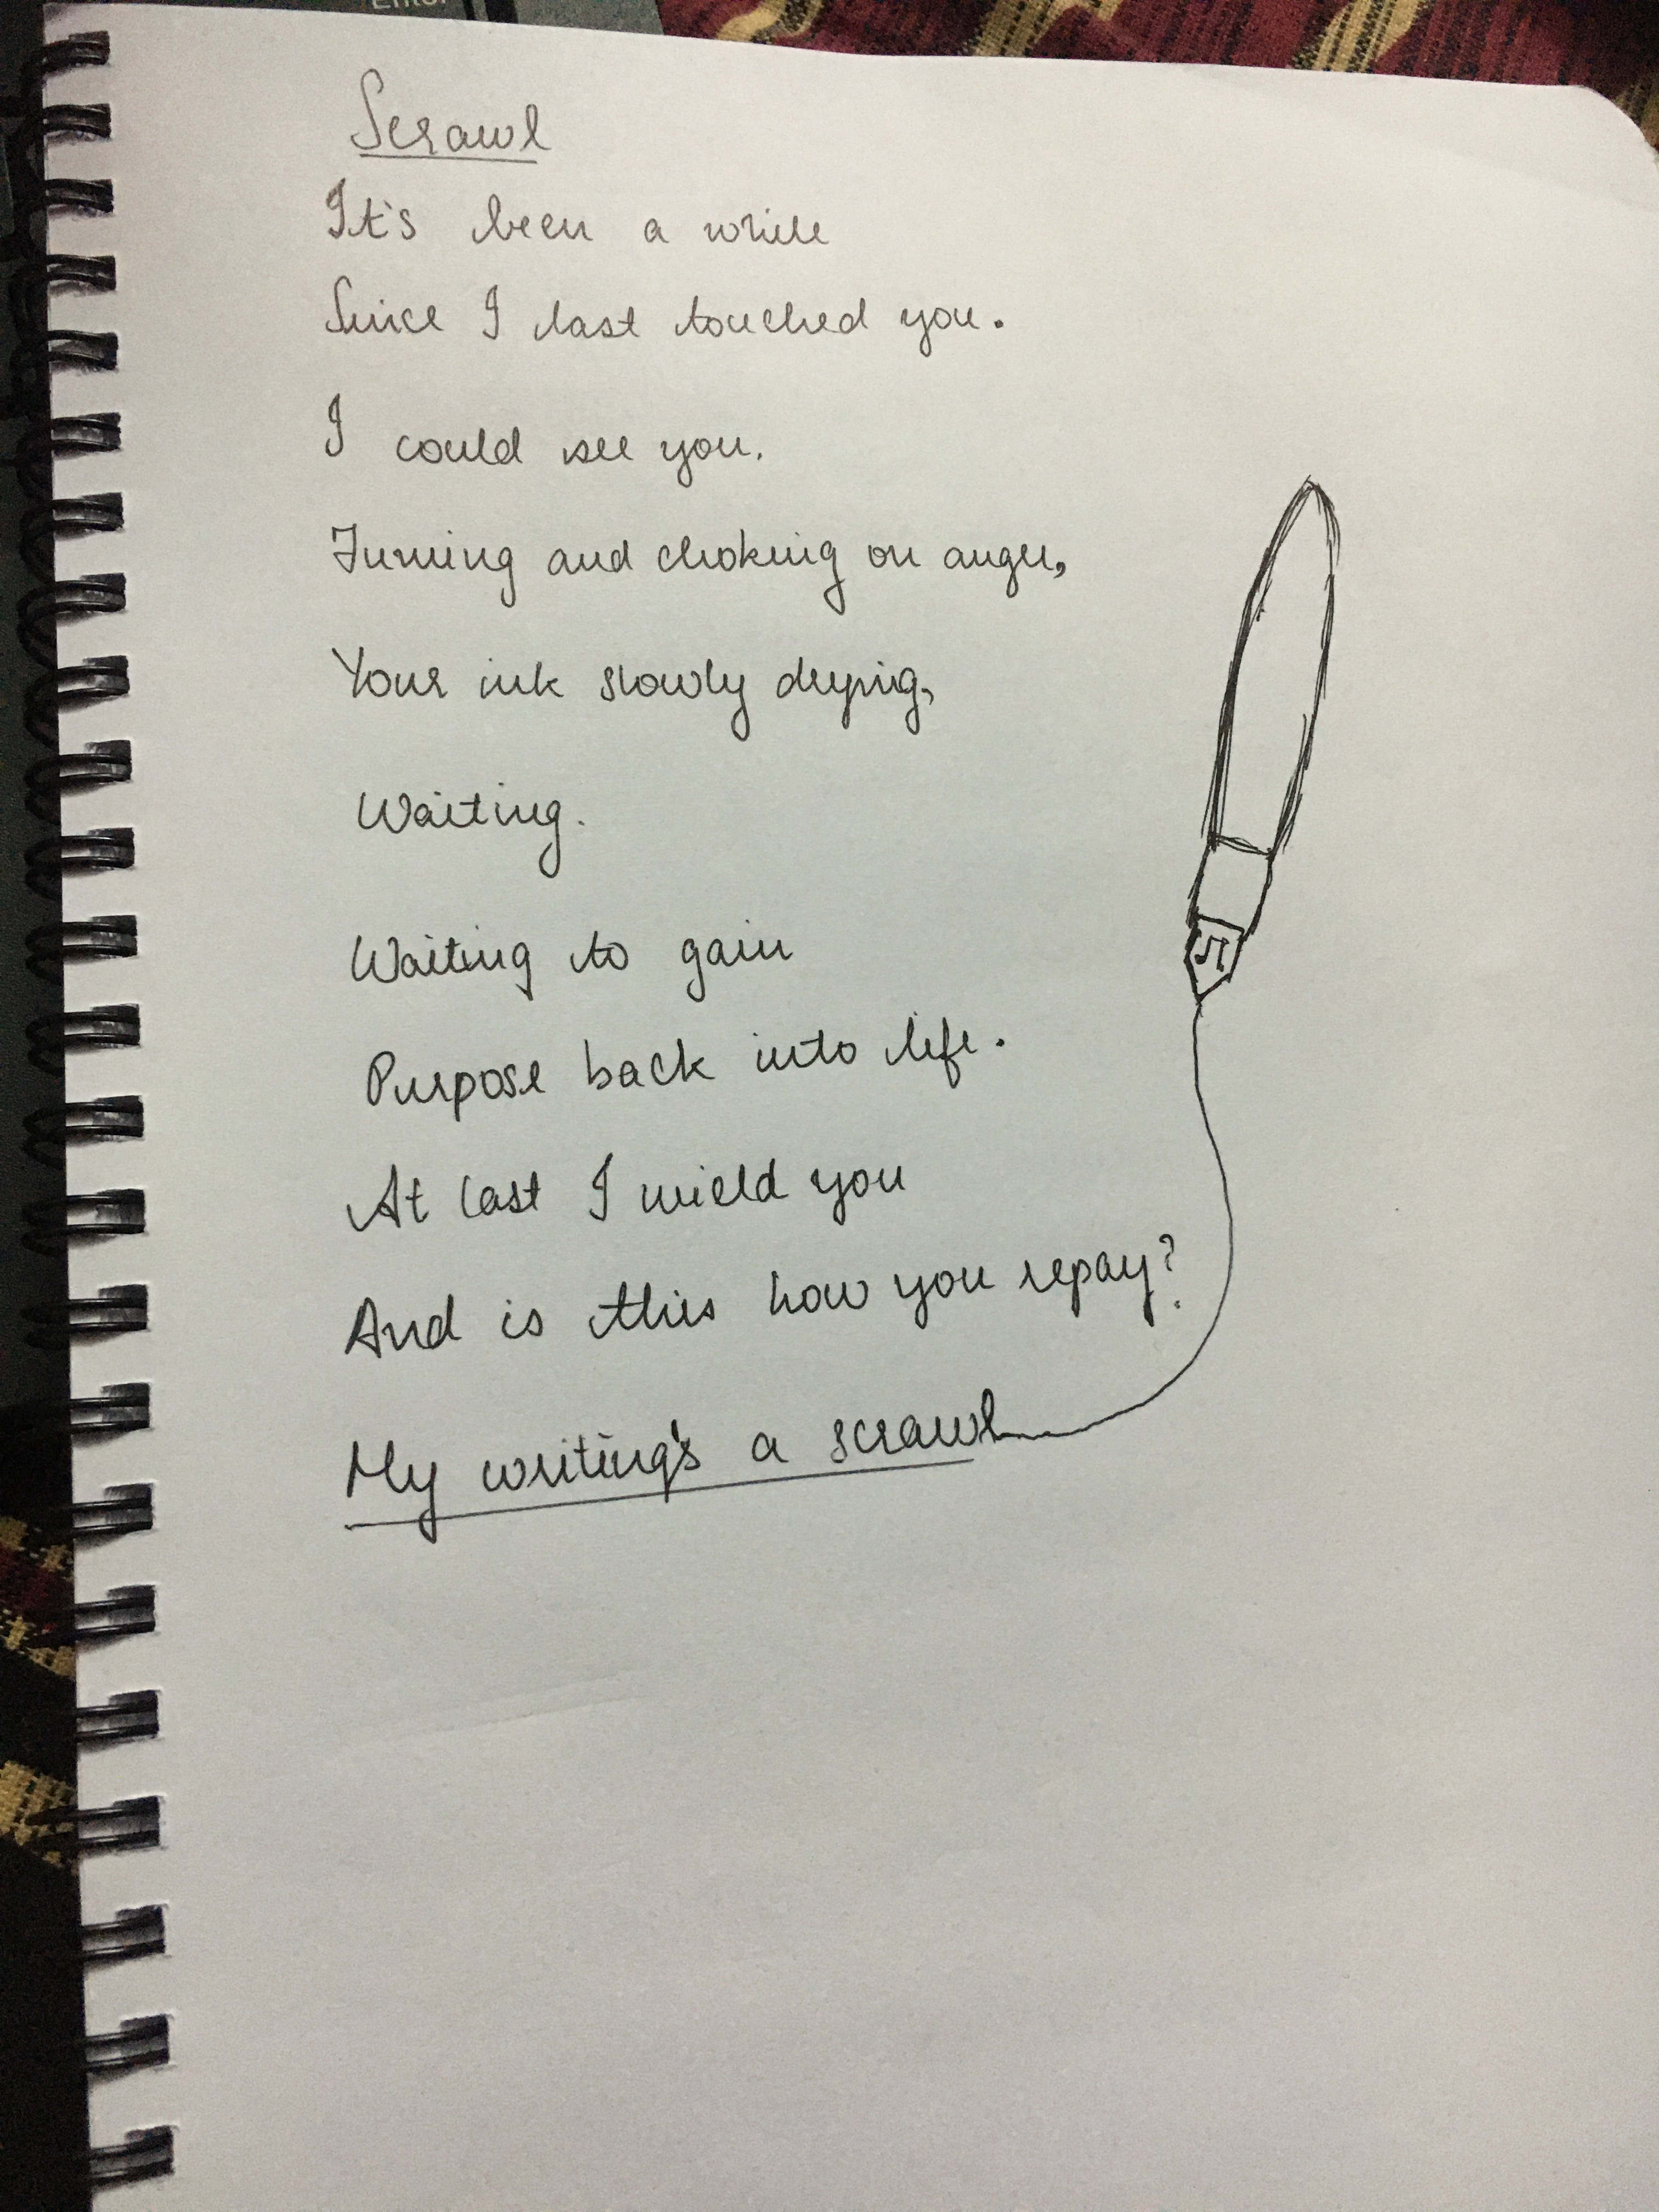 Enter
Scrawl
It's been a while
Since I last touched you.
I could see you.
Fuming and choking on anger,
Your ink slowly drying,
Waiting.
Waiting to gain
Purpose back into life.
At last I wield you
And is this how you repay?
My writing's a scrawl